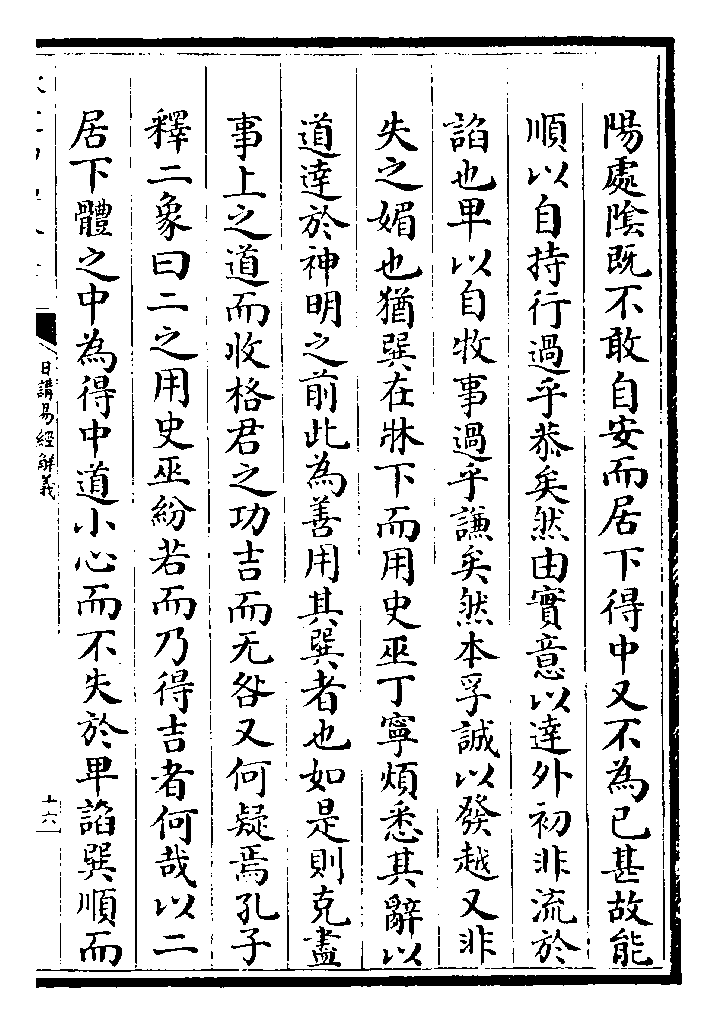 陽處隂既不敢自安而居下得中又不為已甚故能
順以自持行過乎恭矣然由實意以達外初非流於
諂也卑以自牧事過乎謙矣然本孚誠以發越又非
失之媚也猶巽在牀下而用史巫丁寧煩悉其辭以
道達於神明之前此為善用其巽者也如是則克盡
事上之道而收格君之功吉而无咎又何疑焉孔子
釋二象曰二之用史巫紛若而乃得吉者何哉以二
居下體之中為得中道小心而不失於卑諂巽順而
日講易經解義
十六